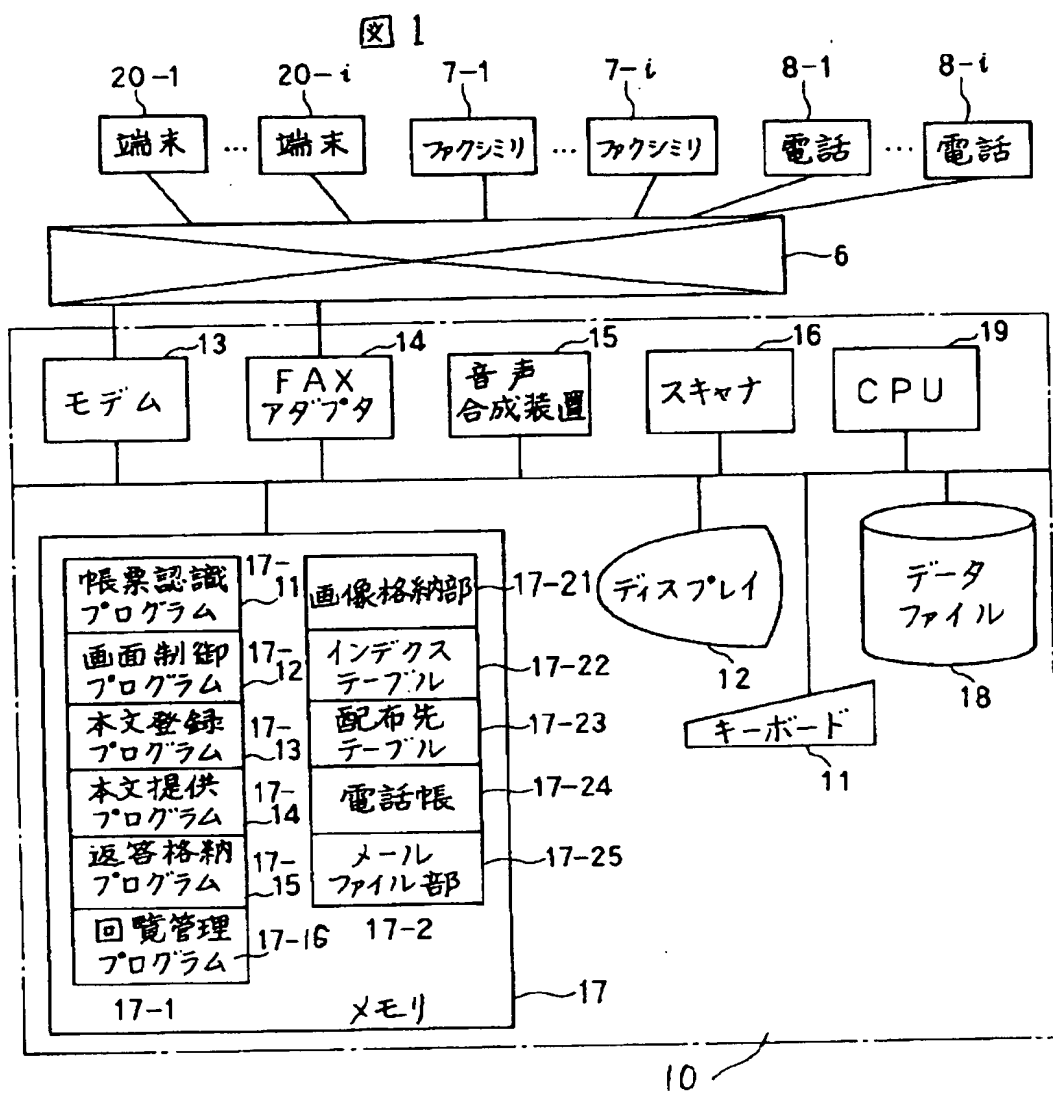 図 1
20-1 20-i 7-1 7-i 8-1 8-i
端末 … 端末 ファクシミリ … ファクシミリ 電話 … 電話
6
13 14 15 16 19
モデム
FAX
アダプタ
音声
合成装置
スキャナ
CPU
帳票認識
プログラム
17-11
画面制御
プログラム
17-12
本文登録
プログラム
17-13
本文提供
プログラム
17-14
返答格納
プログラム
17-15
回覧管理
プログラム
17-16
17-1
画像格納部
17-21
インデクス
テーブル
17-22
配布先
テーブル
17-23
電話帳
17-24
メール
ファイル部
17-25
17-2
メモリ
17
ディスプレイ
12
キーボード
11
データ
ファイル
18
10